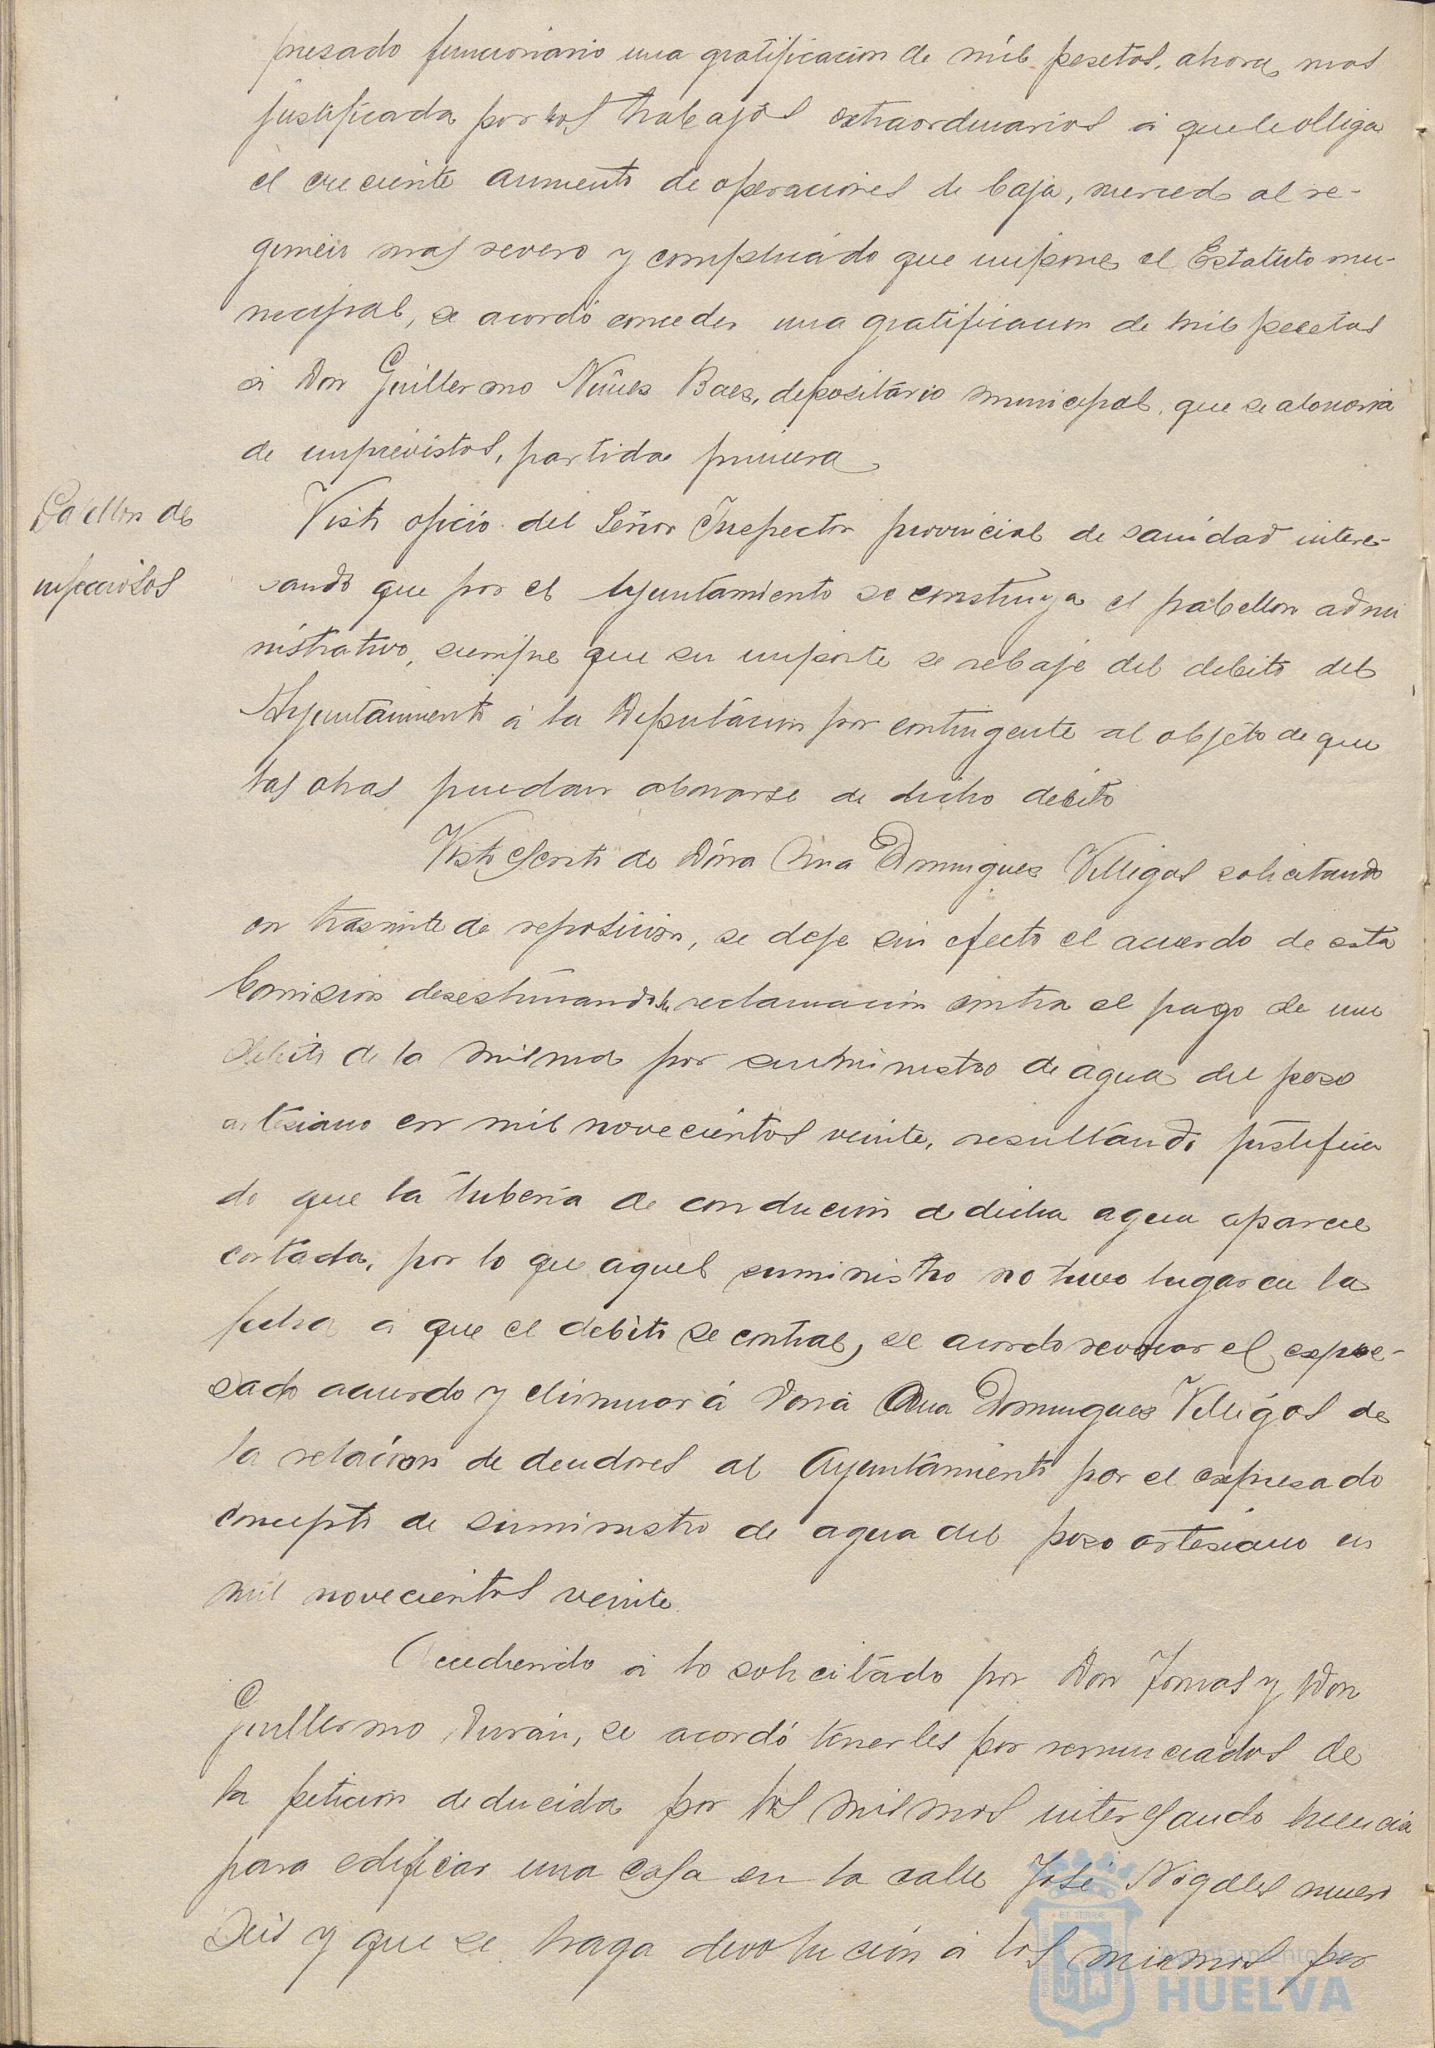 presado funcionario una gratificacion de mil pesetas, ahora mas
justificada por los trabajos extraordinarios a que le obliga
el creciente aumento de operaciones de caja, merced al re-
gimen mas severo y complicado que impone el Estatuto mu-
nicipal, se acordó conceder una gratificacion de mil pesetas
a Don Guillermo Nuñes Baes, depositario municipal, que se abonaria
de imprevistos, partida primera
Pabellon de
infecciosos
Visto oficio del Señor Inspector provincial de sanidad intere-
sando que por el Ayuntamiento se construya el pabellon admi
nistrativo, siempre que su importe se rebaje del debito del
Ayuntamiento a la Diputacion por contingente al objeto de que
las obras puedan abonarse de dicho debito
Visto escrito de Doña Ana Domingues Villegas solicitando
en tramite de reposicion, se deje sin efecto el acuerdo de esta
Comision desestimando la reclamacion contra el pago de un
debito de la misma por suministro de agua del poso
artesiano en mil novecientos veinte, resultando justifica
do que la tuberia de conducion de dicha agua aparece
cortada, por lo que aquel suministro no tuvo lugar en la
fecha a que el debito se contrae, se acordo revocar el expre-
sado acuerdo y eliminar á Doña Ana Domingues Villegas de
la relacion de deudores al Ayuntamiento por el expresado
concepto de suministro de agua del poso artesiano en
mil novecientos veinte
Accediendo a lo solicitado por Don Tomas y Don
Guillermo Duran, se acordó tenerles por renunciados de
la peticion deducida por los mismos interesando licencia
para edificar una casa en la calle José Nogales numero
seis y que se haga devolución a los mismos por
Ayuntamiento de
HUELVA